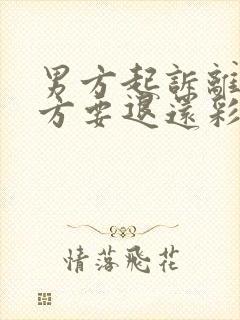 男方起訴離
方要退還彩
情落飛花